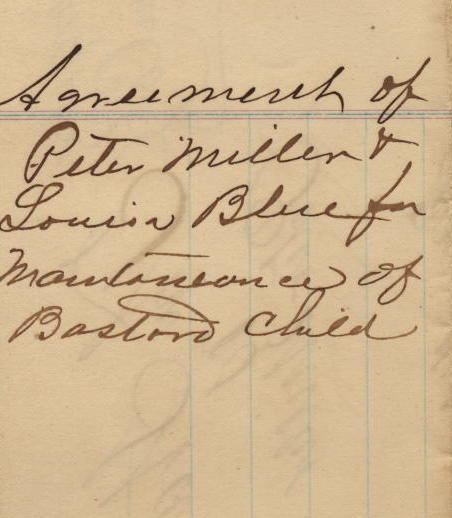 Agreement of
Peter Miller &
Louisa Blue for
Maintaineance of
Bastard Child